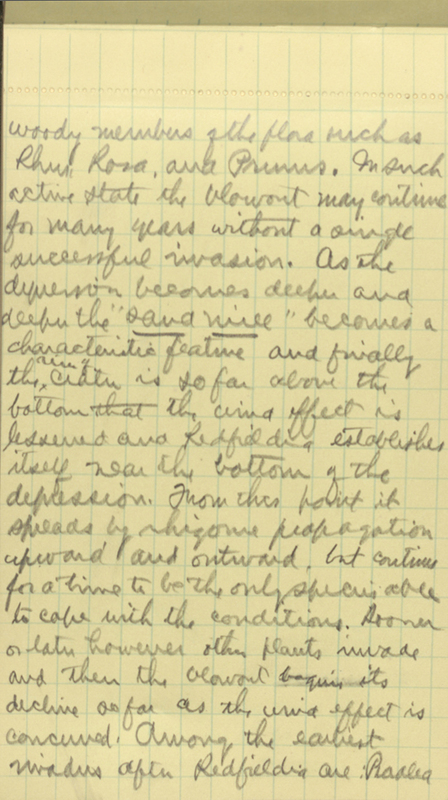 woody members of the flora such as
Rhus, Rosa, and Prunus. In such
active state the blowout may continue
for many years without a single
successful invasion. As the
depression becomes deeper and
deeper the "sand rivee" becomes a
characteristic feature and finally
the "rim" crater is so far above the
bottom that the wind effect is
lessened and Redfieldia establishes
itself near the bottom of the
depression. From this point it
spreads by rhizome propagation
upward and outward, but continues
for a time to be the only species able
to cope with the conditions. Sooner
or later however other plants invade
and then the blowout begins its
decline so far as the wind effect is
concerned. Among the earliest
invaders after Redfieldia are: Psoralea